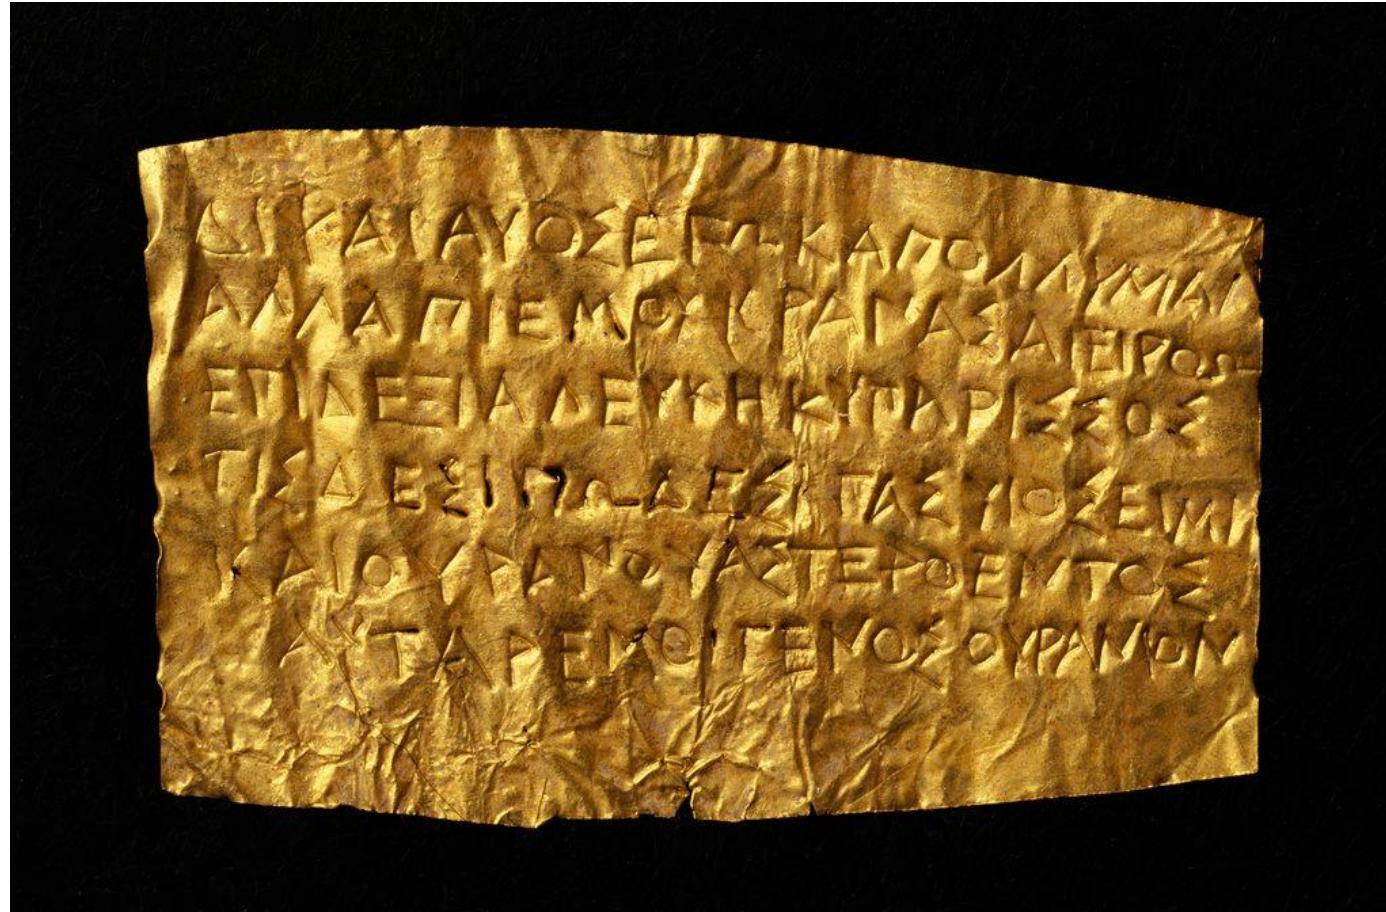 ΔΙΚΑΙΑΥΟΣΕΓΩΚΑΠΟΛΛΥΜΑΙ
ΑΛΛΑΠΙΕΜΟΥΚΡΑΝΑΣΑΙΕΙΡΟΩ
ΕΠΙΔΕΞΙΑΔΕΥΚΗΚΥΠΑΡΙΣΣΟΣ
ΤΙΣΔΕΣΙΠΩΔΕΣΙΓΑΣΥΙΟΣΕΙΜΙ
ΚΑΙΟΥΡΑΝΟΥΑΣΤΕΡΟΕΝΤΟΣ
ΑΥΤΑΡΕΜΟΙΓΕΝΟΣΟΥΡΑΝΙΟΝ